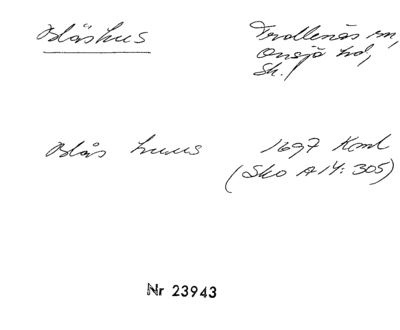 Blåshus
Trollenäs sn,
Onsjö hd,
Sk.
Blås huus
1697 Kml
(Sko A14: 305)
Nr 23943